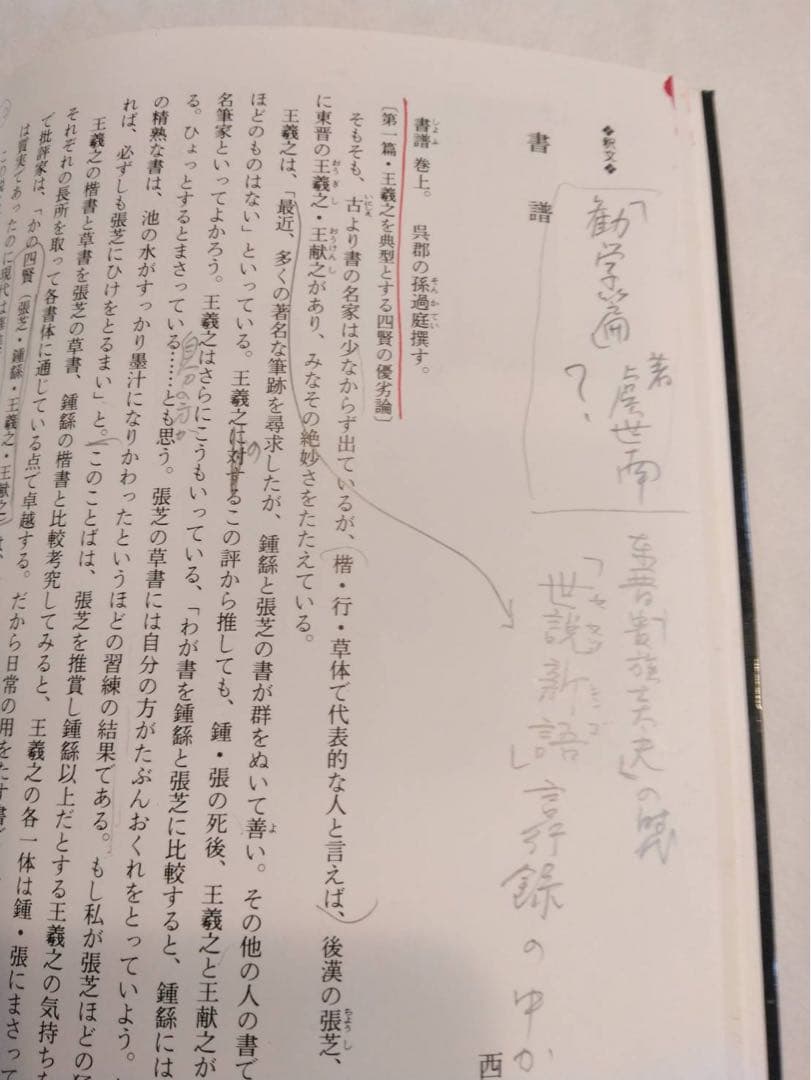 ◆釈文◆
書譜
「勧学篇」 著 虞世南
?
東晋貴族士大夫の時代
「世説新語」言行録の中か
西
書譜 巻上。 呉郡の孫過庭撰す。
〔第一篇・王羲之を典型とする四賢の優劣論〕
そもそも、古より書の名家は少なからず出ているが、(楷・行・草体で代表的な人と言えば、)後漢の張芝、
に東晋の王羲之・王献之があり、みなその絶妙さをたたえている。
王羲之は、「最近、多くの著名な筆跡を尋求したが、鍾繇と張芝の書が群をぬいて善い。その他の人の書で
ほどのものはない」といっている。王羲之に対するこの評から推しても、鍾・張の死後、王羲之と王献之が
名筆家といってよかろう。王羲之はさらにこうもいっている、「わが書を鍾繇と張芝に比較すると、鍾繇には
る。ひょっとするとまさっている……とも思う。張芝の草書には自分の方がたぶんおくれをとっていよう。
の精熟な書は、池の水がすっかり墨汁になりかわったというほどの習練の結果である。もし私が張芝ほどの
れば、必ずしも張芝にひけをとるまい」と。このことばは、張芝を推賞し鍾繇以上だとする王羲之の気持ち
王羲之の楷書と草書を張芝の草書、鍾繇の楷書と比較考究してみると、王羲之の各一体は鍾・張にまさって
それぞれの長所を取って各書体に通じている点で卓越する。だから日常の用をたす書
で批評家は、「かの四賢(張芝・鍾繇・王羲之・王献之)は、
は質実であったのに現代は